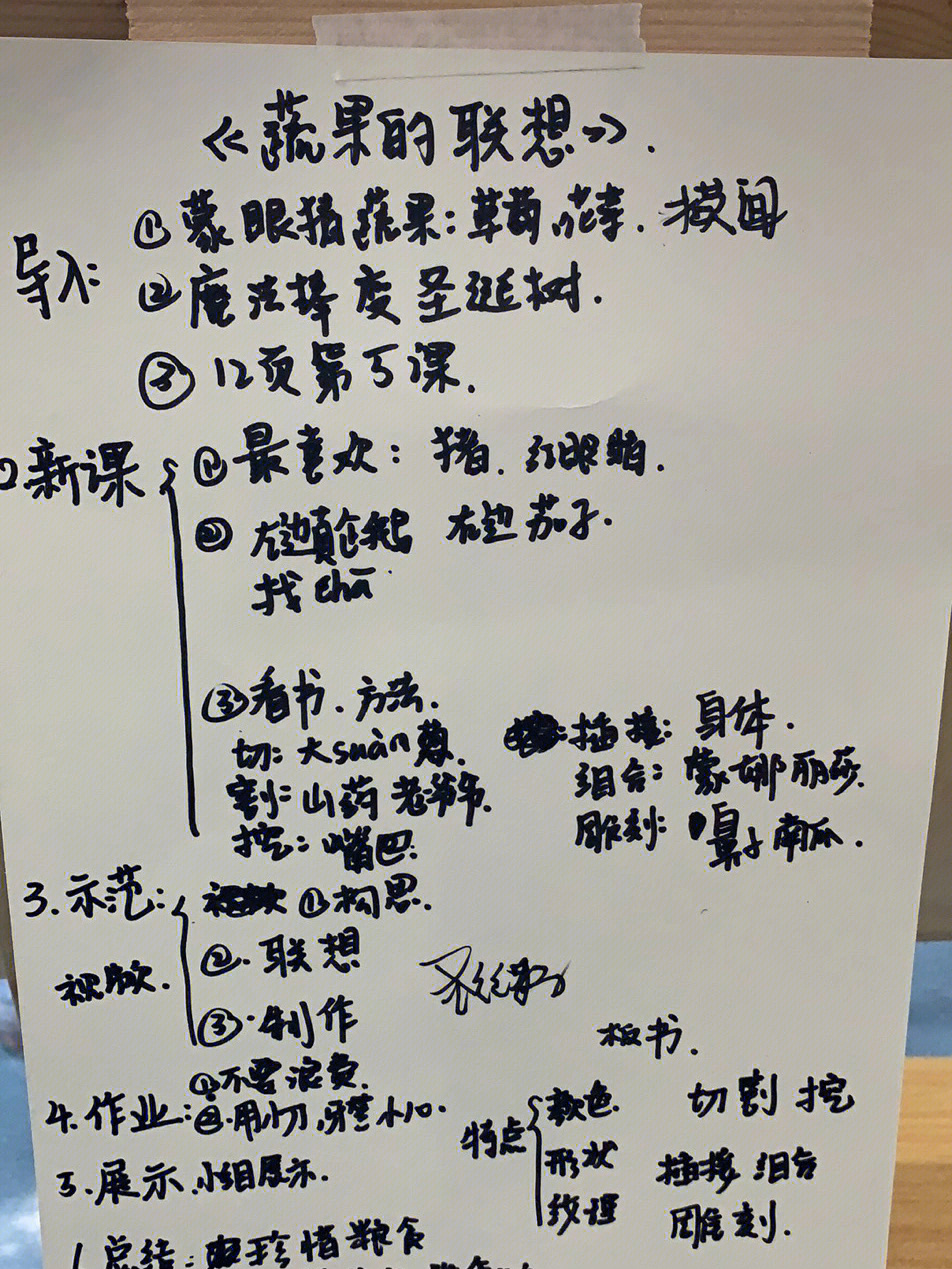 《蔬果的联想》.
导入: ①蒙眼猜蔬果:草莓. 摸闻
②魔法棒变圣诞树.
③12页第5课.
2.新课 ①最喜欢: 猪. 红眼睛.
② 左边真企鹅 右边茄子.
找chā
③看书.方法.
切: 大suàn
割: 山药老爷爷.
挖: 嘴巴.
插接: 身体.
组合: 蒙娜丽莎.
雕刻: 鼻子南瓜.
3.示范: ①构思.
视频. ②.联想
③.制作
4.作业: ①不要浪费.
②.用小刀,牙签小心.
5.展示.小组展示.
板书.
特点 颜色
形状
纹理
切割挖
插接 组合
雕刻.
总结: 珍惜粮食